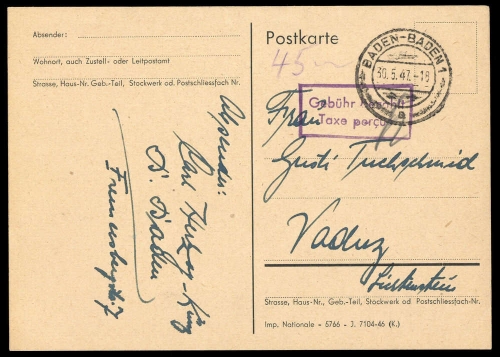 Absender:
Wohnort, auch Zustell- oder Leitpostamt
Strasse, Haus-Nr. Geb.-Teil, Stockwerk od. Postschliessfach Nr.
Absender:
Carl Herzog-King
B. Baden
Fremersbergstr. 7
Postkarte
45
BADEN-BADEN 1
30.5.47.-18
a
Gebühr bezahlt
Taxe perçue
Frau
Gusti Tuchschmid
Vaduz
Liechtenstein
Strasse, Haus-Nr., Geb.-Teil, Stockwerk od Postschliessfach-Nr.
Imp. Nationale - 5766 - J. 7104-46 (K.)